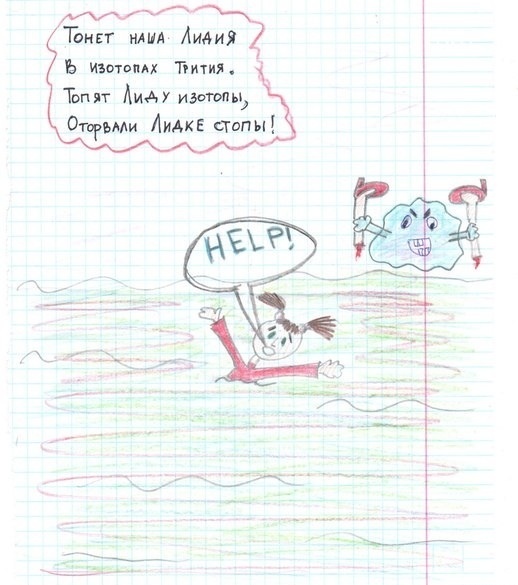 Тонет наша Лидия
в изотопах Трития.
Топят Лиду изотопы,
Оторвали Лидке стопы!
HELP!